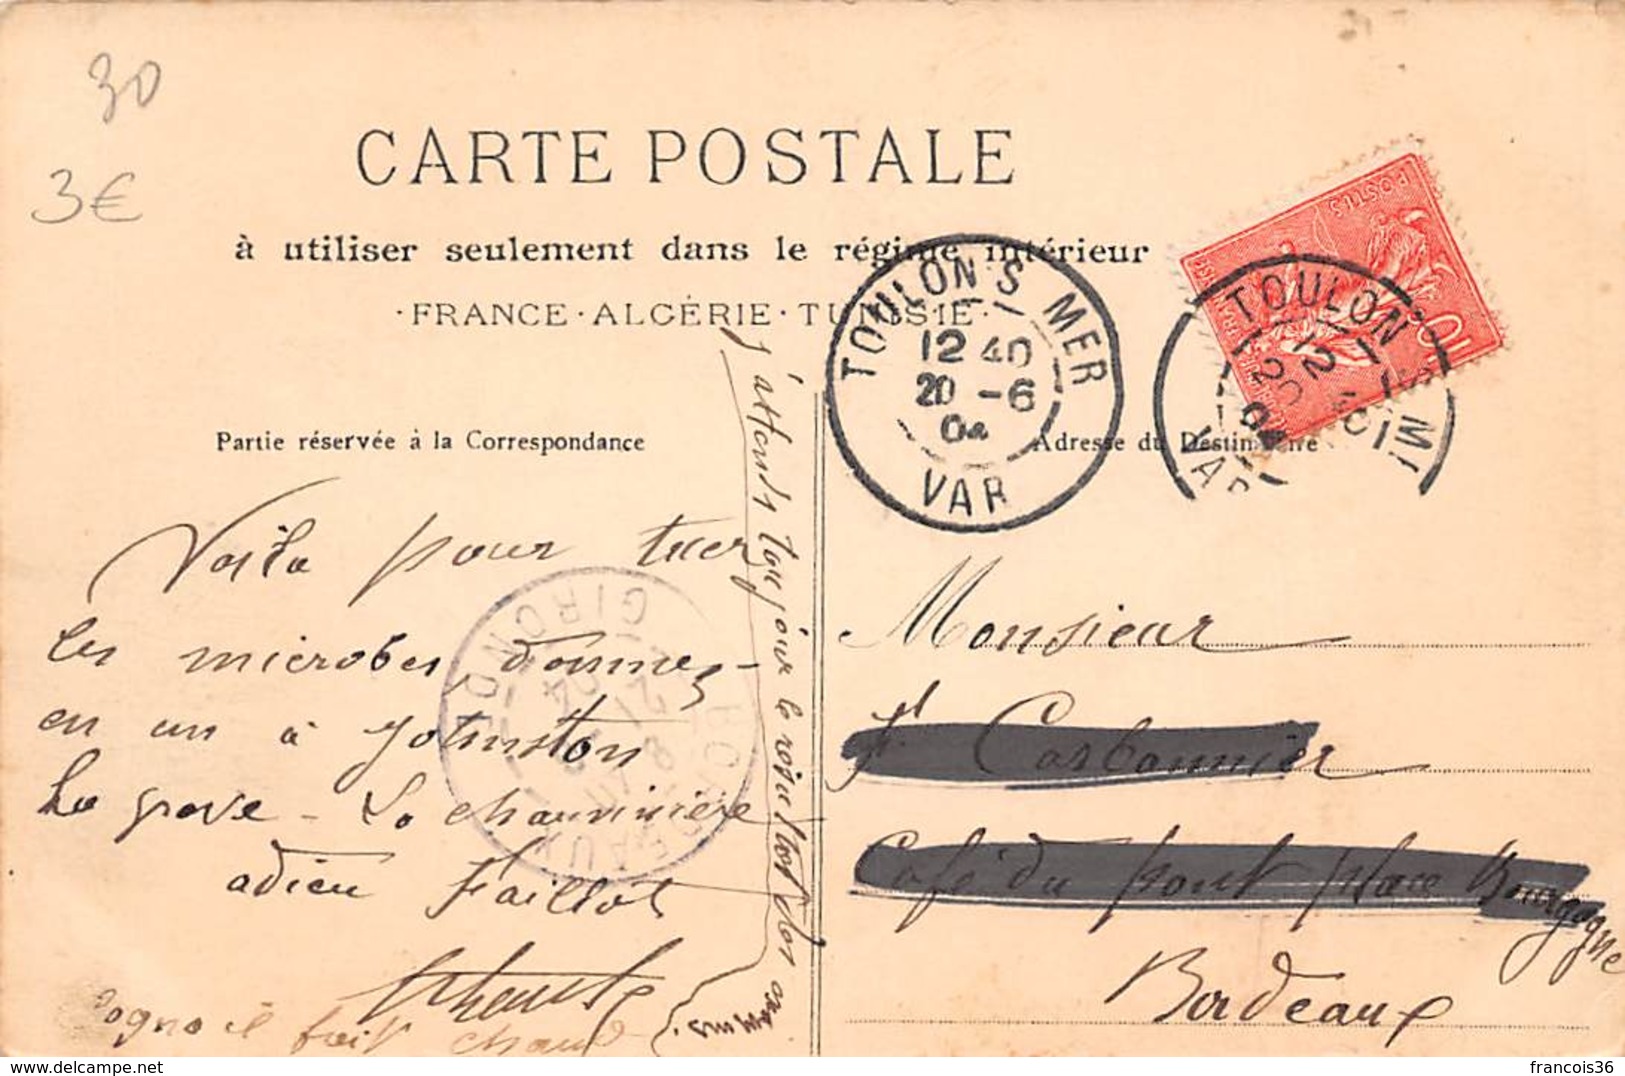 30
3€
CARTE POSTALE
à utiliser seulement dans le régime intérieur
·FRANCE·ALGÉRIE·TUNISIE·
TOULON S MER
12 40
20 -6
04
VAR
POSTES
10
TOULON
12 40
20
04
VAR
Partie réservée à la Correspondance
Adresse du Destinataire
Voila pour tuer
les microbes, donnes-
en un à Johnston
La grave - La chauminière
adieu Faillot
il fait chaud
j'attends toujour le
BORDEAUX
GIRONDE
Monsieur
F. Carbonnier
Café du pont place Bourgogne
Bordeaux
www.delcampe.net
francois36